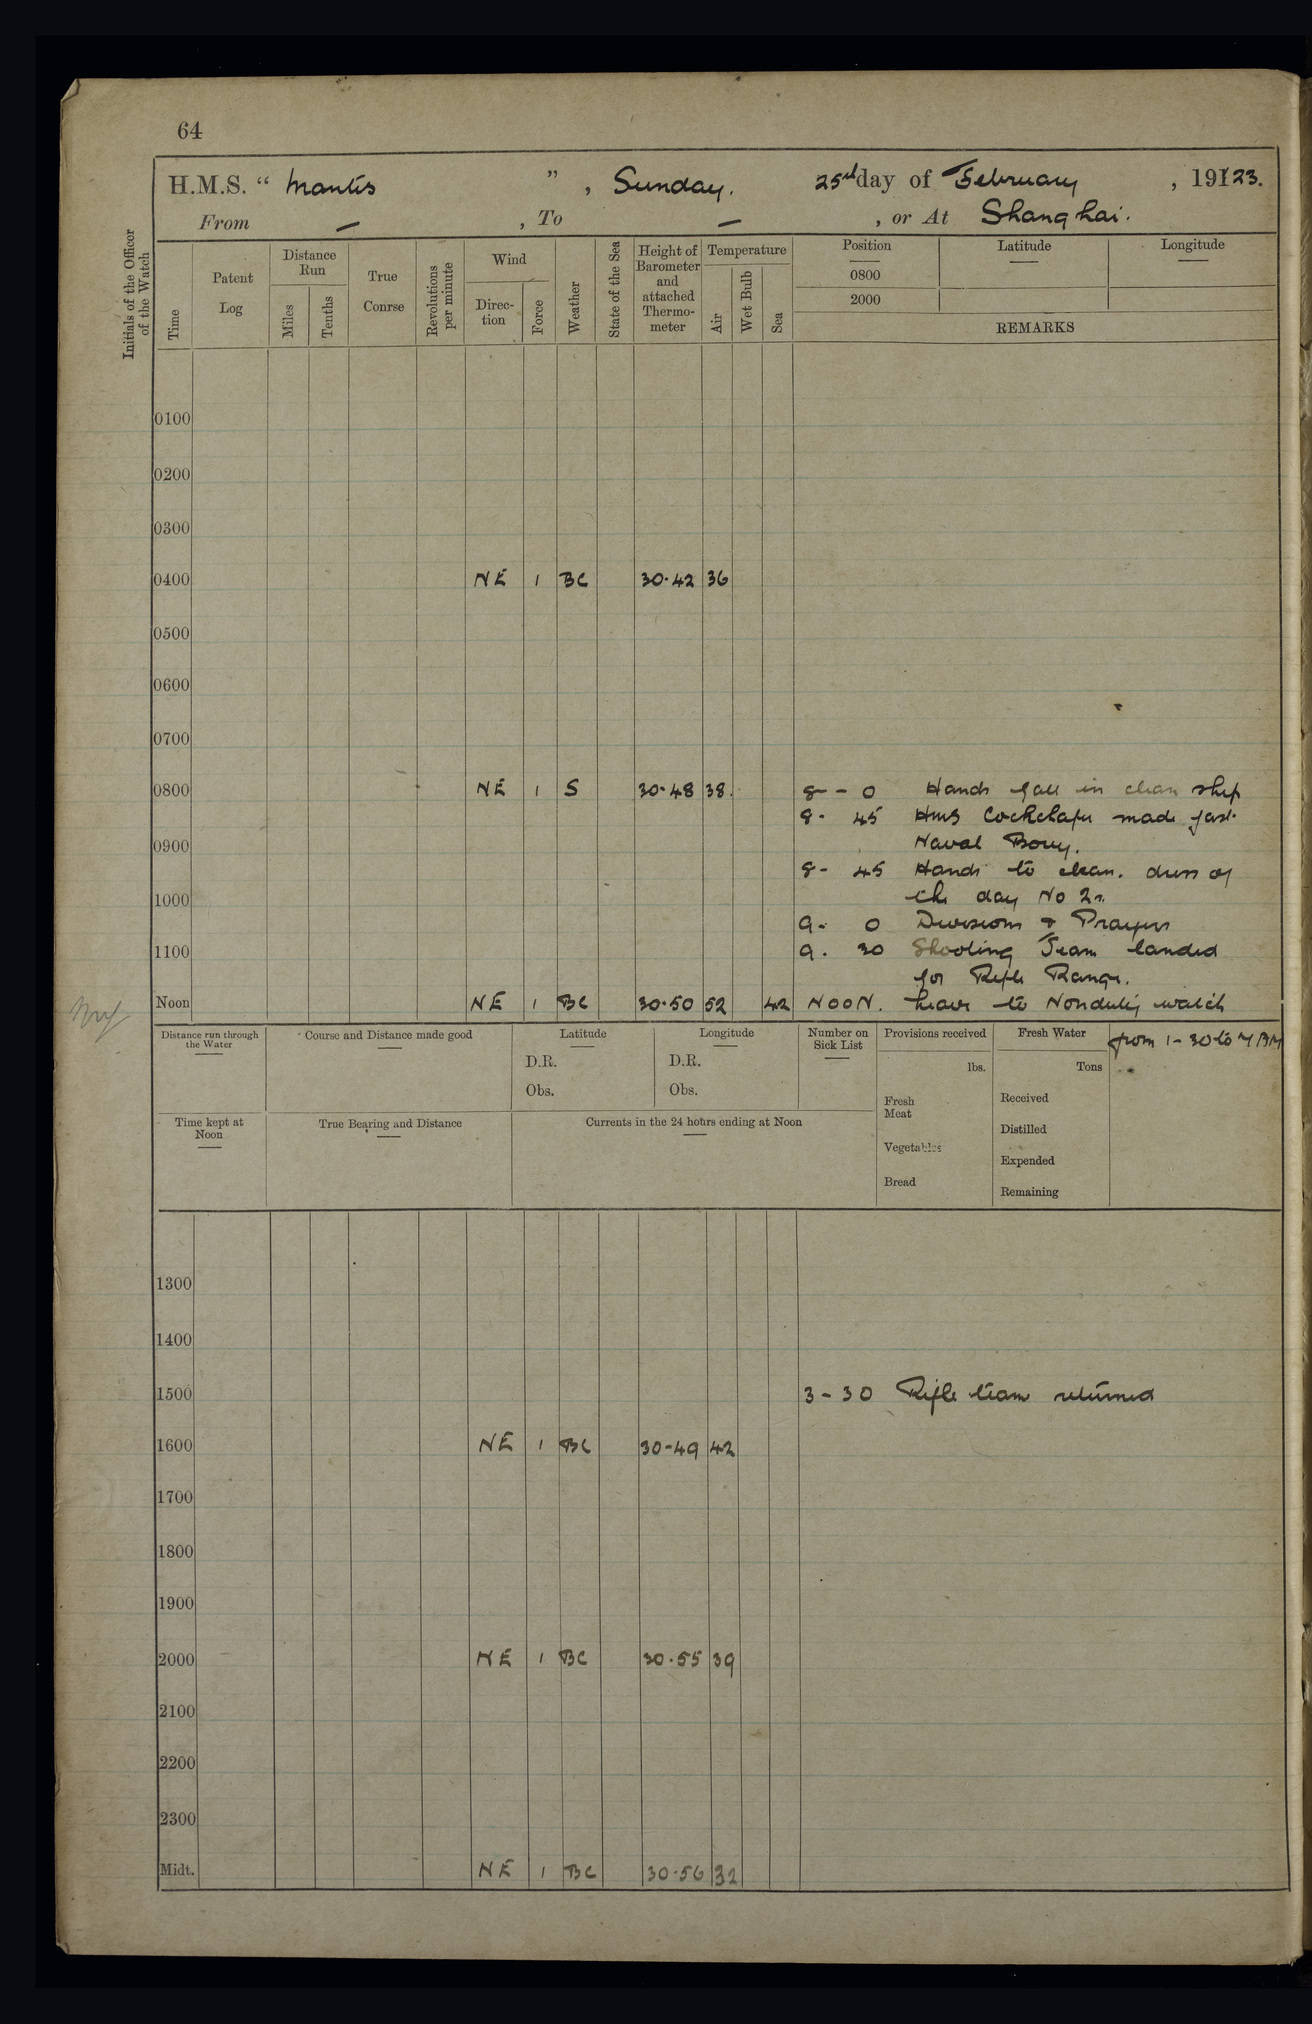 64
H.M.S. “ Mantis ” , Sunday. 25th day of February , 191 23.
From — , To — , or At Shanghai.
Initials of the Officer of the Watch
Time
Patent Log
Distance Run
Miles
Tenths
True Conrse
Revolutions per minute
Wind
Direc- tion
Force
Weather
State of the Sea
Height of Barometer and attached Thermo- meter
Temperature
Air
Wet Bulb
Sea
Position Latitude Longitude
0800
2000
REMARKS
0100
0200
0300
0400 NE 1 BC 30.42 36
0500
0600
0700
0800 NE 1 S 30.48 38. 8 - 0 Hands fall in clean ship
8. 45 HMS Cockchafer made fast
0900 Naval Bouy.
8- 45 Hands to clean. dress of
1000 the day No 2s.
9. 0 Divisions & Prayers
1100 9. 30 Shooting Team landed
for Rifle Range.
Noon NE 1 BC 30.50 52 42 NOON. Leave to Nonduty watch
from 1-30 to 7
Distance run through the Water
Course and Distance made good
Latitude
D.R.
Obs.
Longitude
D.R.
Obs.
Number on Sick List
Provisions received
lbs.
Fresh Meat
Vegetables
Bread
Fresh Water
Tons
Received
Distilled
Expended
Remaining
Time kept at Noon
True Bearing and Distance
Currents in the 24 hours ending at Noon
1300
1400
1500 3-30 Rifle team returned
1600 NE 1 BC 30-49 42
1700
1800
1900
2000 NE 1 BC 30.55 39
2100
2200
2300
Midt. NE 1 BC 30.56 32